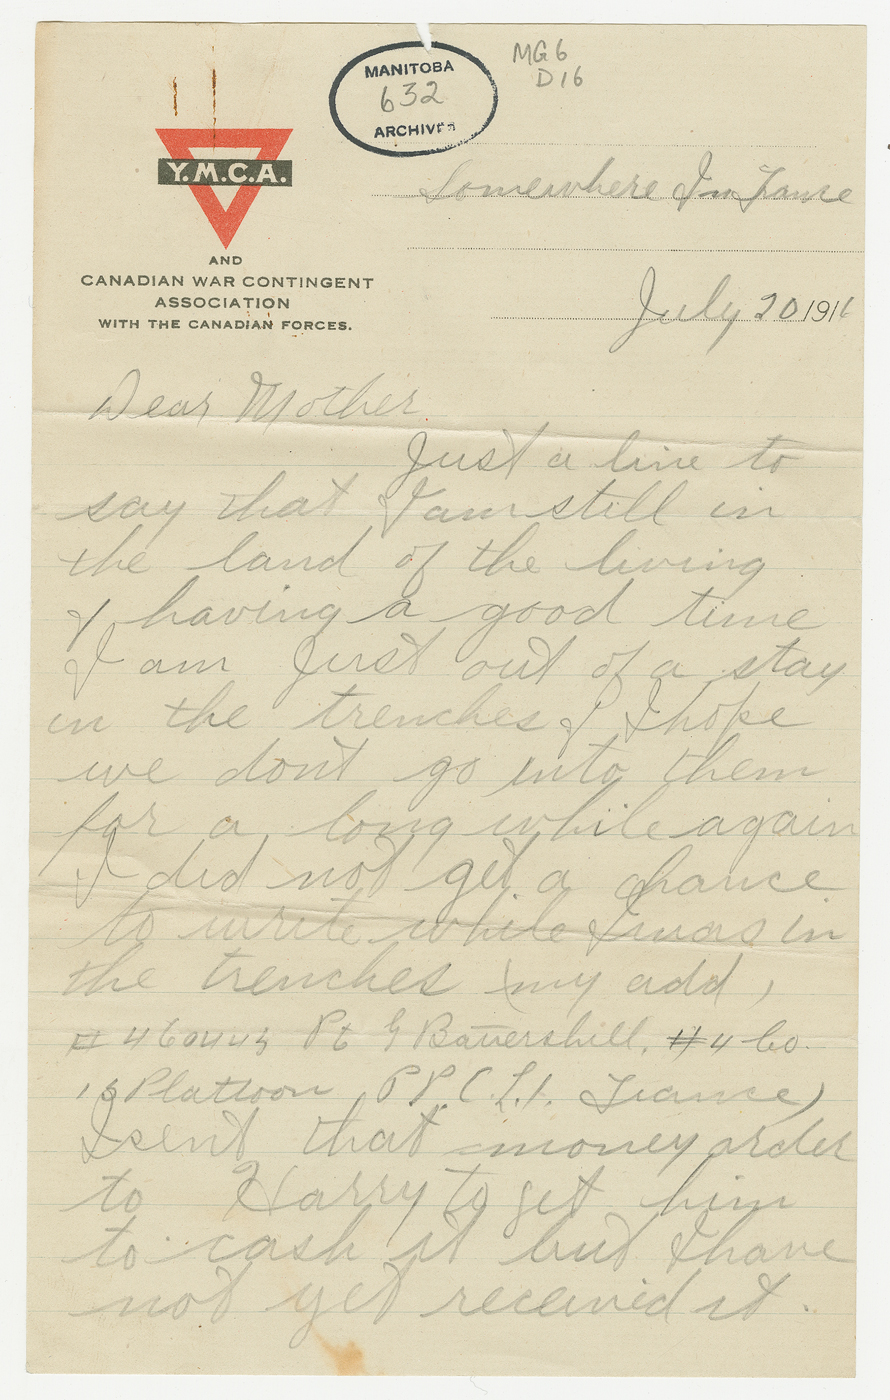 MANITOBA
632
ARCHIVES
MG6
D16
Y.M.C.A.
AND
CANADIAN WAR CONTINGENT
ASSOCIATION
WITH THE CANADIAN FORCES.
Somewhere In France
July 20 1916
Dear Mother
Just a line to
say that I am still in
the land of the living
& having a good time
I am Just out of a stay
in the trenches & I hope
we dont go into them
for a long while again
I did not get a chance
to write while I was in
the trenches (my add,
# 460443 Pt G Battershill, #4 Co.
16 Platoon P.P.C.L.I. France)
I sent that money order
to Harry to get him
to cash it but I have
not yet received it.